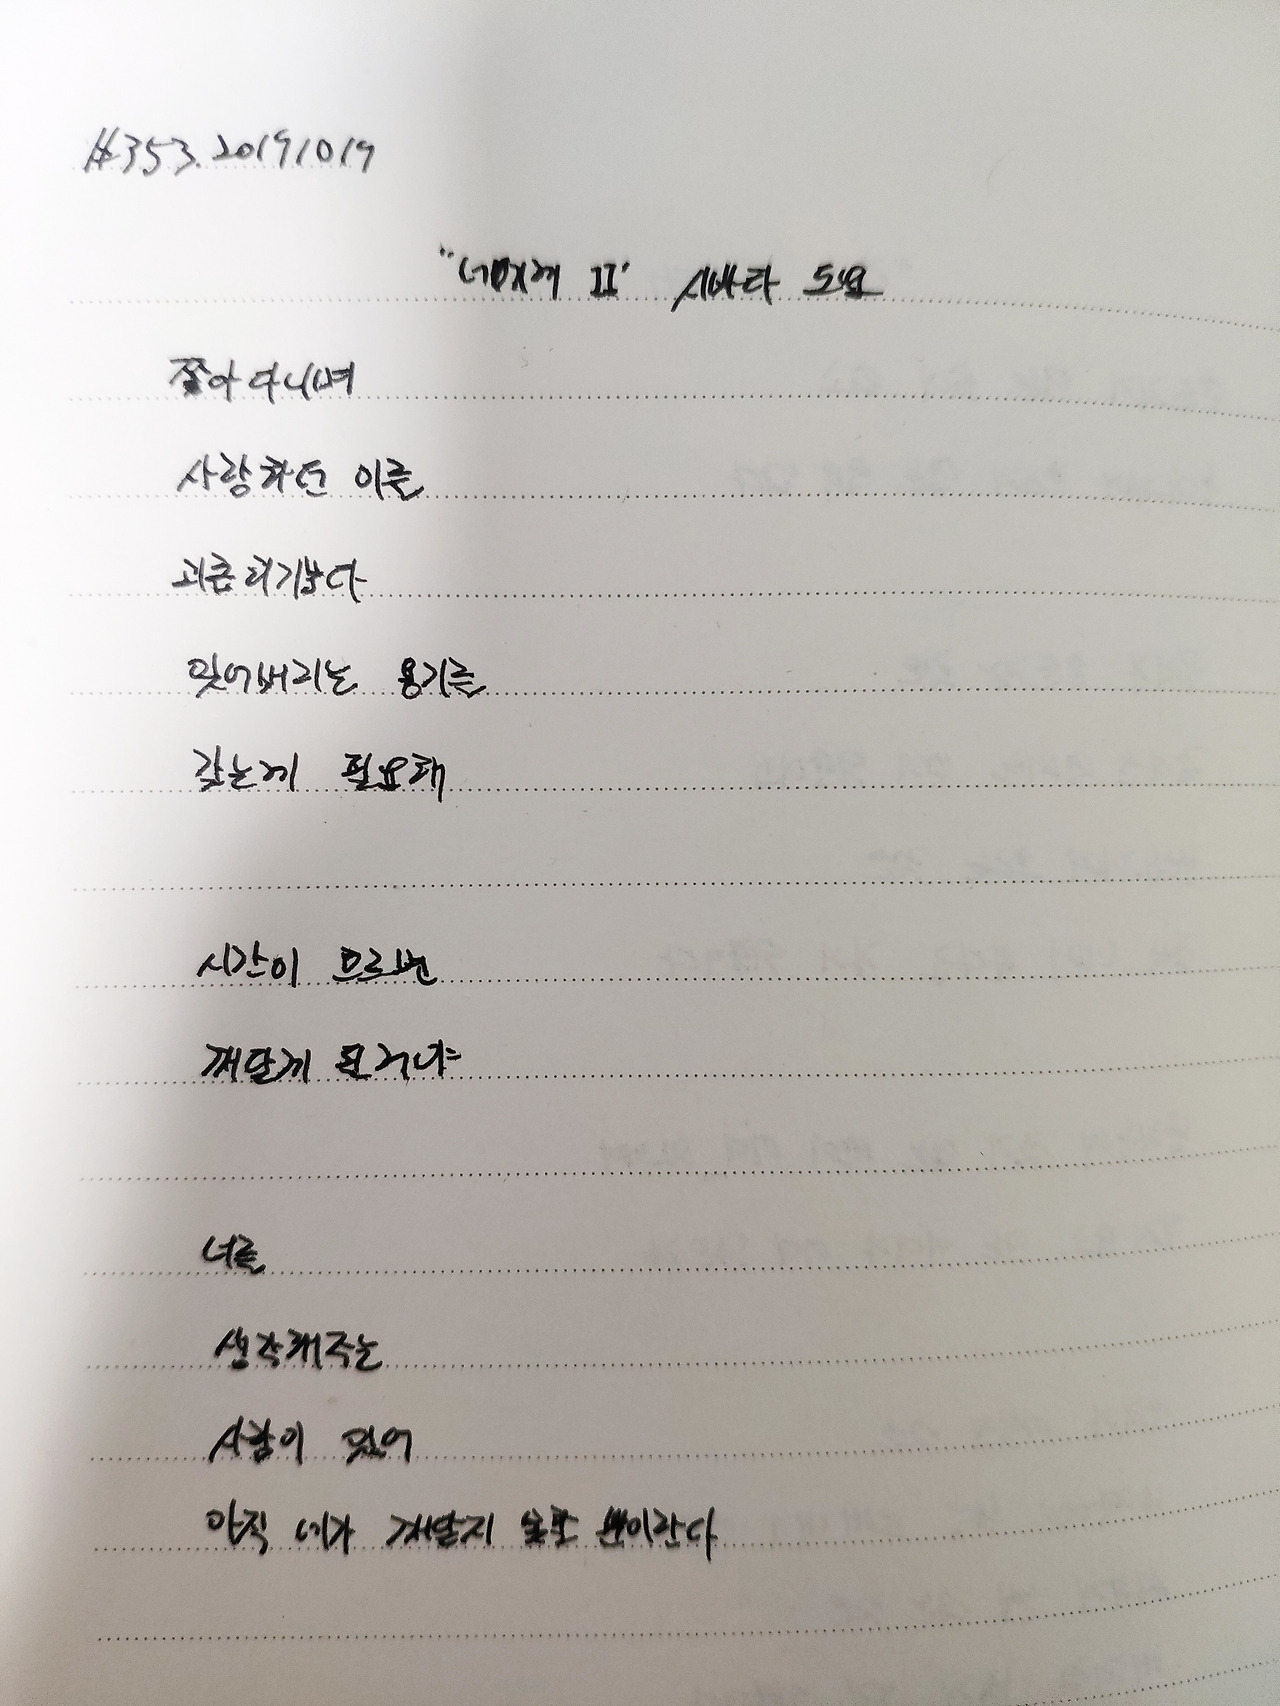 #353. 20191019
"너에게 II" 시바타 도요
쫓아다니며
사랑하던 이를
괴롭히기보다
잊어버리는 용기를
갖는게 필요해
시간이 흐르면
깨닫게 될거야
너를
생각해주는
사람이 있어
아직 네가 깨닫지 못할 뿐이란다